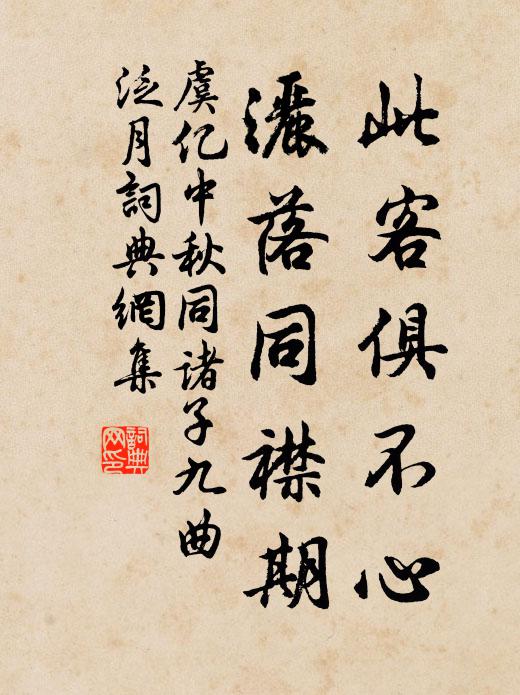 此客俱不心
灑落同襟期
虞亿中秋同诸子九曲
泛月詞典網集
詞典
网印